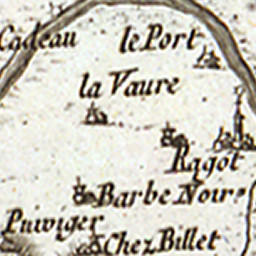 Cadeau
le Port
la Vaure
Ragot
Barbe Noire
Puiviger
Chez Billet